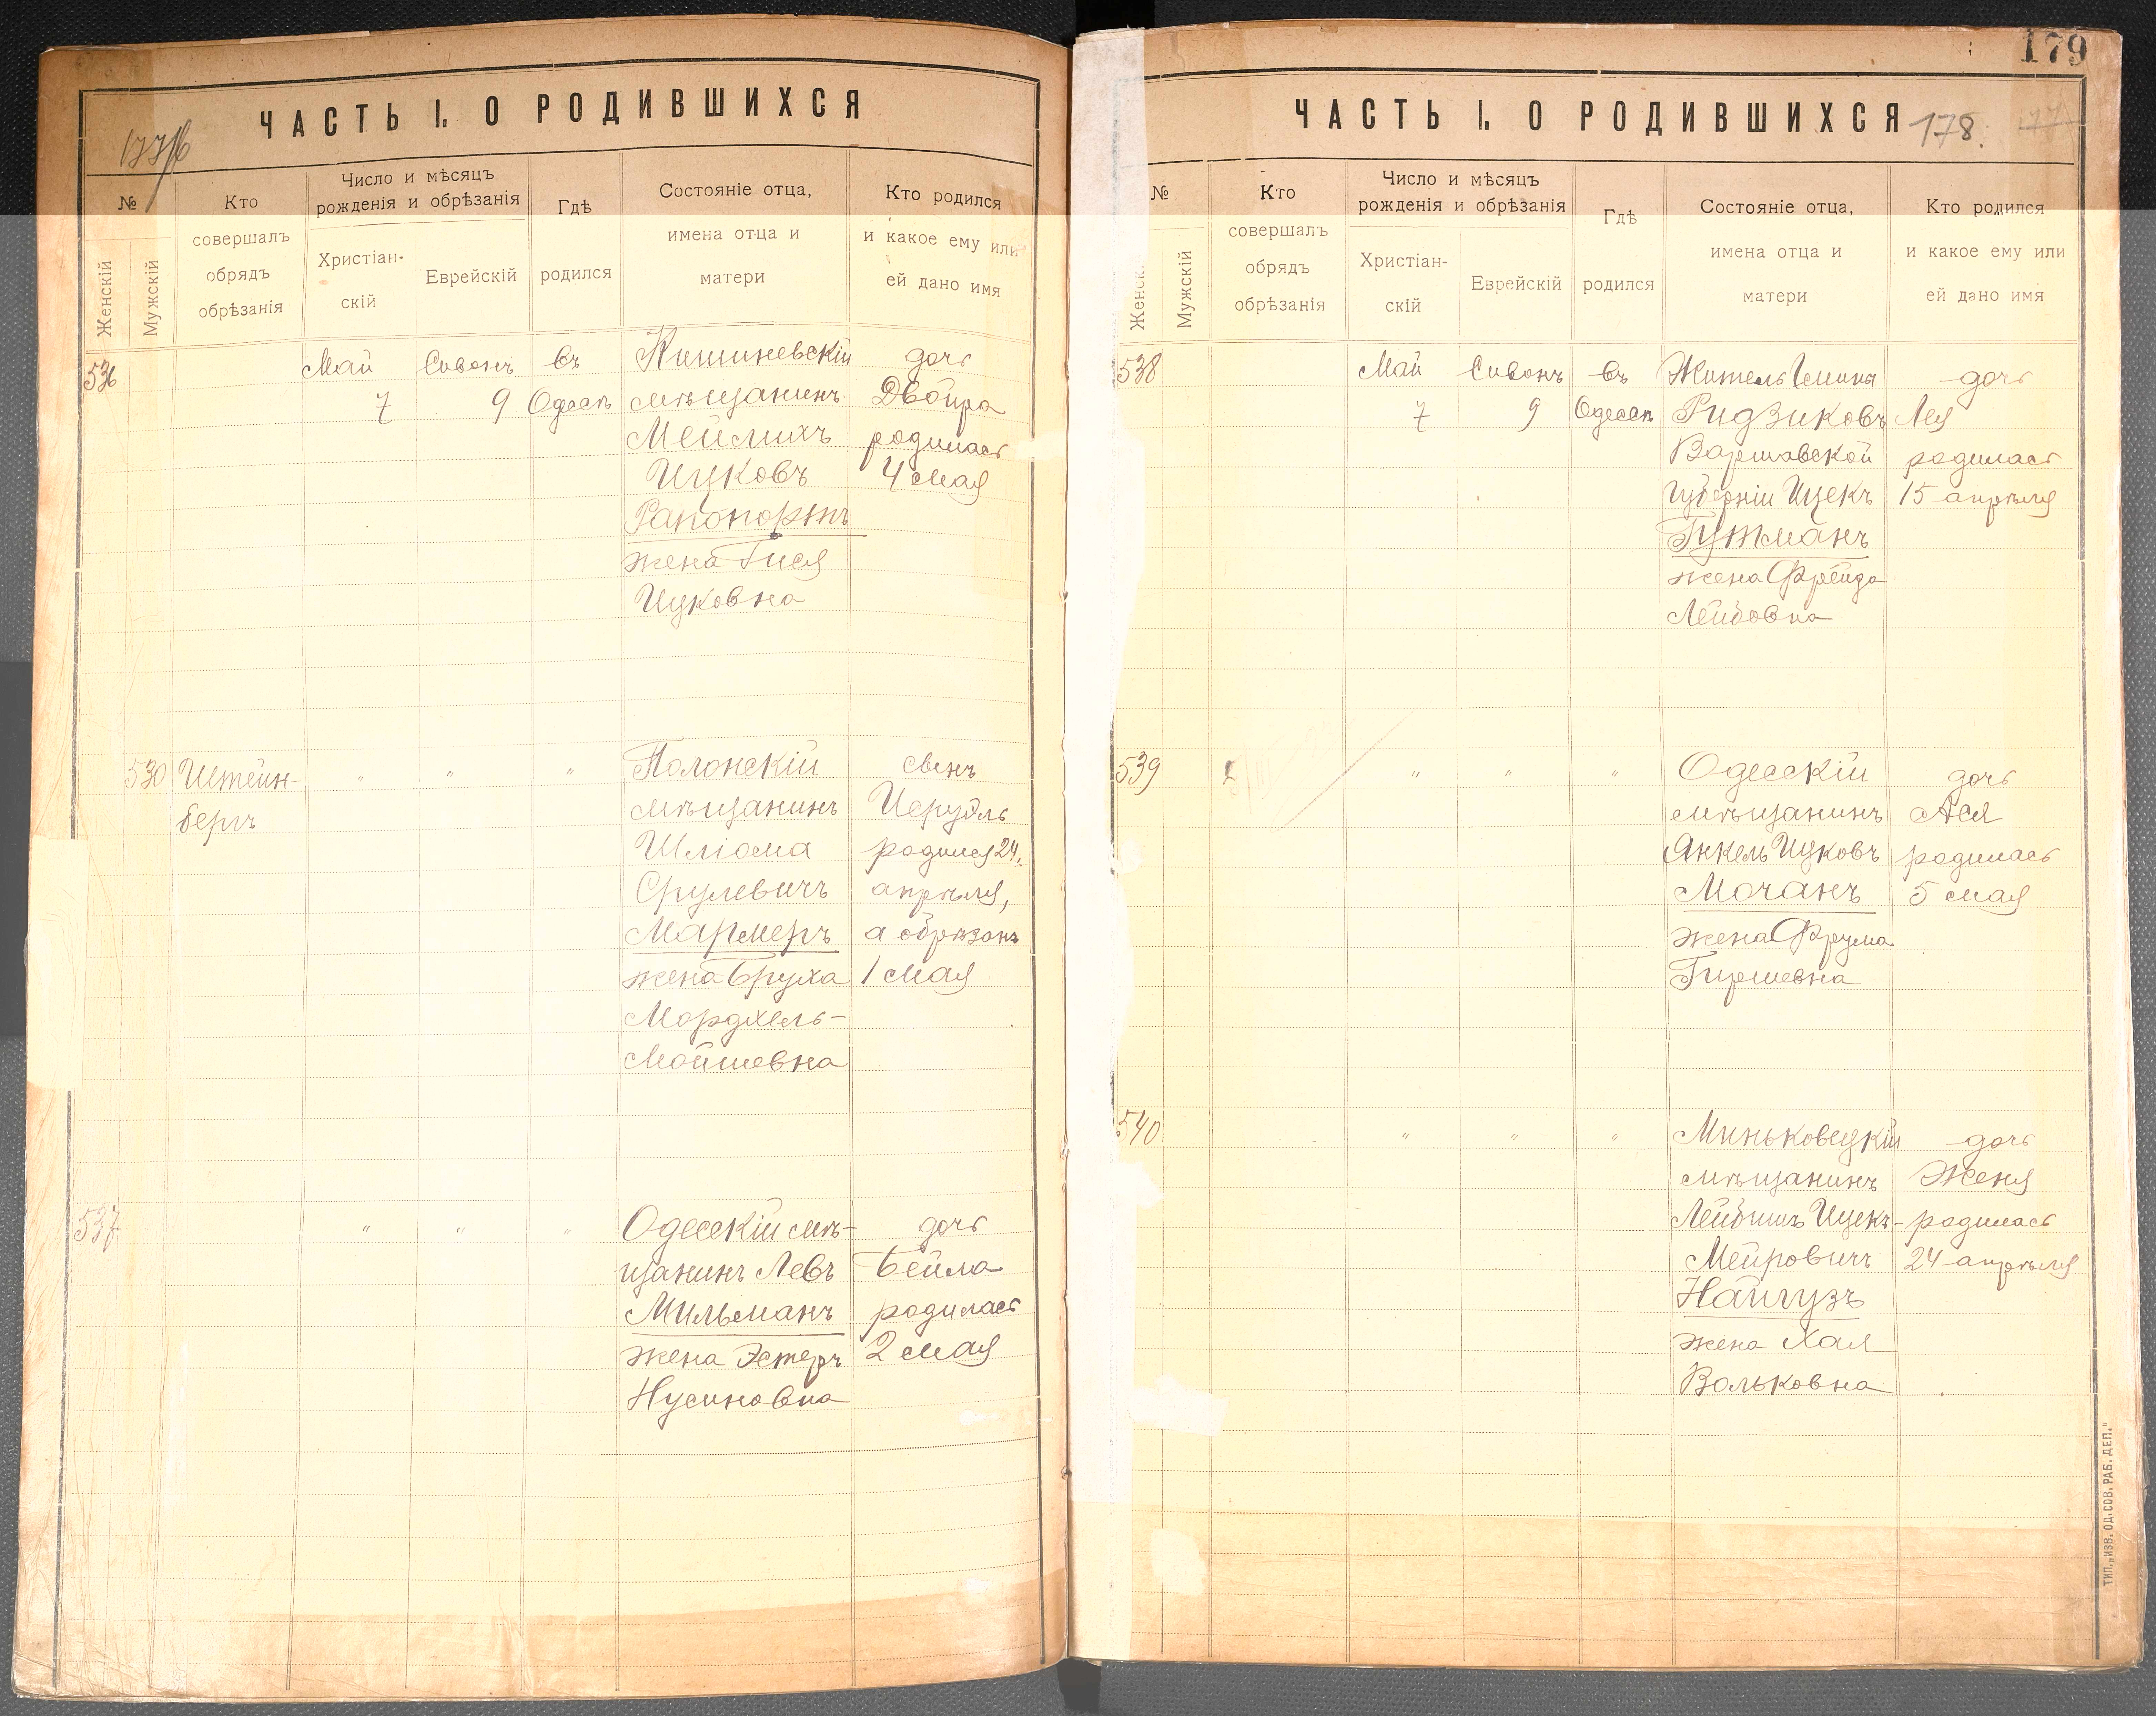 ЧАСТЬ I. О РОДИВШИХСЯ
№
Женскій
Мужскій
Кто
совершалъ
обрядъ
обрѣзанія
Число и мѣсяцъ
рожденія и обрѣзанія
Христіан-
скій
Еврейскій
Гдѣ
родился
Состояніе отца,
имена отца и
матери
Кто родился
и какое ему или
ей дано имя
536
Май
7
Сивонъ
9
въ
Одессѣ
Кишиневскій
мѣщанинъ
Мейлихъ
Ицковъ
Рапопортъ
жена Гися
Ицковна
дочь
Двойра
родилась
4 мая
530
Штейн-
бергъ
"
"
"
Полонскій
мѣщанинъ
Шліома
Срулевичъ
Мармеръ
жена Бруха
Мордхель-
Мойшевна
сынъ
родился 24
апрѣля,
а обрѣзанъ
1 мая
537
"
"
"
Одесскій мѣ-
щанинъ Левъ
Мильманъ
жена Эстеръ
Нусиновна
дочь
Бейла
родилась
2 мая
179
ЧАСТЬ I. О РОДИВШИХСЯ
178.
№
Женск
Мужскій
Кто
совершалъ
обрядъ
обрѣзанія
Число и мѣсяцъ
рожденія и обрѣзанія
Христіан-
скій
Еврейскій
Гдѣ
родился
Состояніе отца,
имена отца и
матери
Кто родился
и какое ему или
ей дано имя
538
Май
7
Сивонъ
9
въ
Одессѣ
Житель Гмины
Ридзиковъ
Варшавской
губерніи Ицекъ
Гутманъ
жена Фрейда
Лейбовна
дочь
Лея
родилась
15 апрѣля
539
"
"
"
Одесскій
мѣщанинъ
Янкель Ицковъ
Мочанъ
жена Фрума
Гиршевна
дочь
Ася
родилась
5 мая
540
"
"
"
Миньковецкій
мѣщанинъ
Лейбишъ Ицекъ-
Мейровичъ
Найгузъ
жена Хая
Вольковна
дочь
Женя
родилась
24 апрѣля
ТИП. „ИЗВ. ОД. СОВ. РАБ. ДЕП."